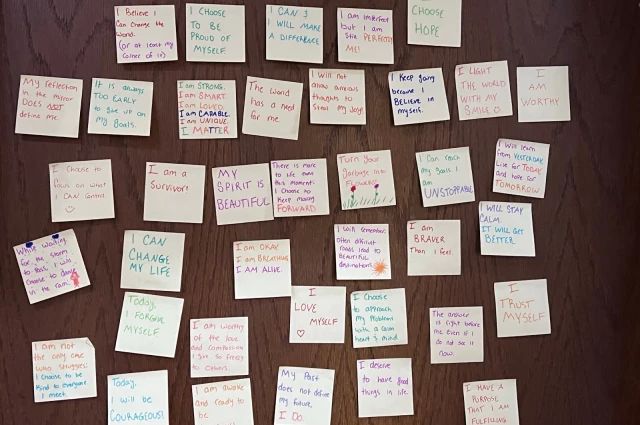 I Believe I
Can Change the
World.
(or at least my
corner of it)
I CHOOSE
TO BE
PROUD OF
MYSELF.
I CAN &
I WILL MAKE
A DIFFERENCE
I am imperfect
but I am
still PERFECTLY
ME!
CHOOSE
HOPE
My reflection
in the mirror
DOES NOT
define me.
It is always
TOO EARLY
to give up on
my goals.
I am STRONG.
I am SMART.
I am LOVED.
I am CAPABLE.
I am UNIQUE.
I MATTER
The world
has a need
for me.
I will not
allow anxious
thoughts to
steal my Joy!
I Keep going
because I
BELIEVE in
myself.
I LIGHT
THE WORLD
WITH MY
SMILE
I AM
WORTHY
I choose to
focus on what
I CAN control
I am a
Survivor!
MY
SPIRIT IS
BEAUTIFUL
There is more
to life than
this moment.
I choose to
Keep moving
FORWARD
Turn your
garbage into
FLOWERS
I can reach
my goals. I
am
UNSTOPPABLE
I will learn
from YESTERDAY
Live for TODAY
and hope for
TOMORROW
While waiting
for the storm
to pass, I will
choose to dance
in the rain.
I CAN
CHANGE
MY LIFE
I am OKAY
I am BREATHING
I AM ALIVE.
I will remember
often difficult
roads lead to
BEAUTIFUL
destinations.
I am
BRAVER
Than I feel.
I WILL STAY
CALM.
IT WILL GET
BETTER.
Today,
I FORGIVE
MYSELF
I am worthy
of the love
and compassion
I give so freely
to others.
I
LOVE
MYSELF
I Choose
to approach
My problems
with a calm
heart & mind.
The answer
is right before
me even if I
do not see it
now.
I
TRUST
MYSELF
I am not
the only one
who struggles.
I choose to be
Kind to everyone
I meet.
Today,
I will be
COURAGEOUS!
I am awake
and ready to
be
My Past
does not define
my future,
I Do.
I deserve
to have good
things in life.
I HAVE A
PURPOSE
THAT I AM
FULFILLING